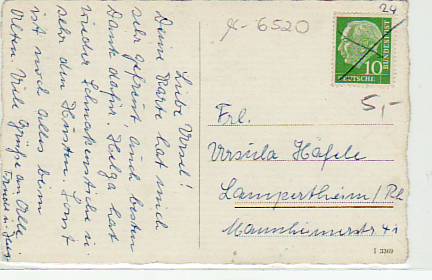 Liebe Ursel!
Deine Karte hat mich
sehr gefreut. Und besten
Dank dafür. Helga hat
wieder Schnakenstiche u.
sehr den Husten. Sonst
ist noch alles beim
Alten. Viele Grüße an Alle.
24
6520
10
DEUTSCHE
BUNDESPOST
5,-
Frl.
Ursula Häfele
Lampertheim/Rh
Mannheimerstr.
I 3369